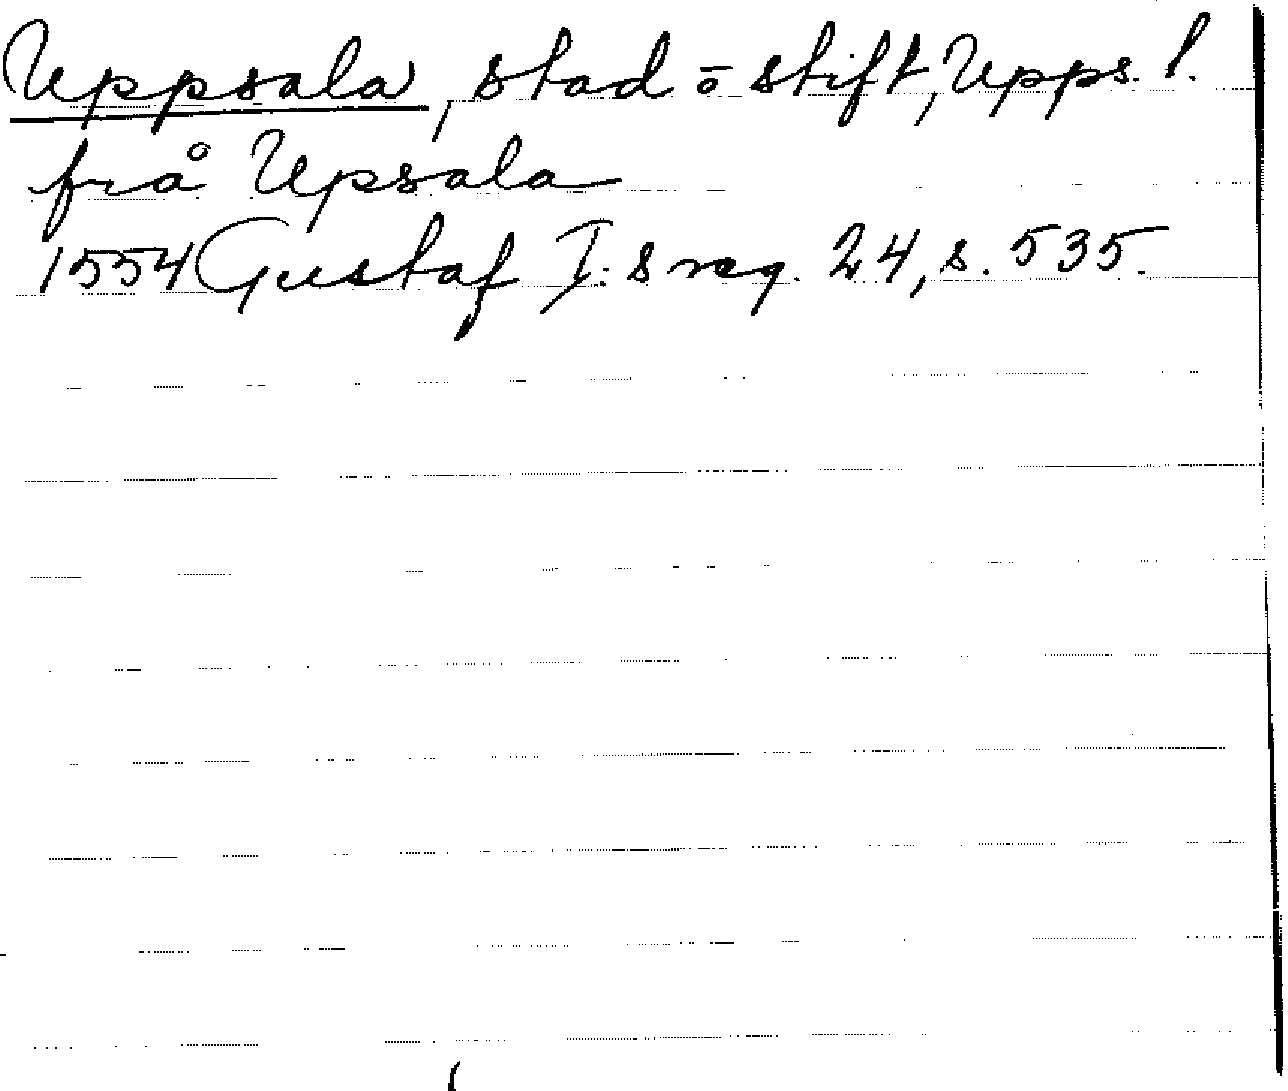 Uppsala, stad o stift, Upps. l.
frå Upsala
1554 Gustaf I:s reg. 24, s. 535.